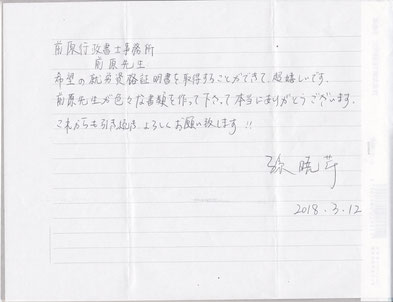 前原行政書士事務所
前原先生
希望の就労資格証明書を取得することができて、超嬉しいです。
前原先生が色々な書類を作って下さって本当にありがとうございます。
これからも引き続きよろしくお願い致します!!
2018.3.12